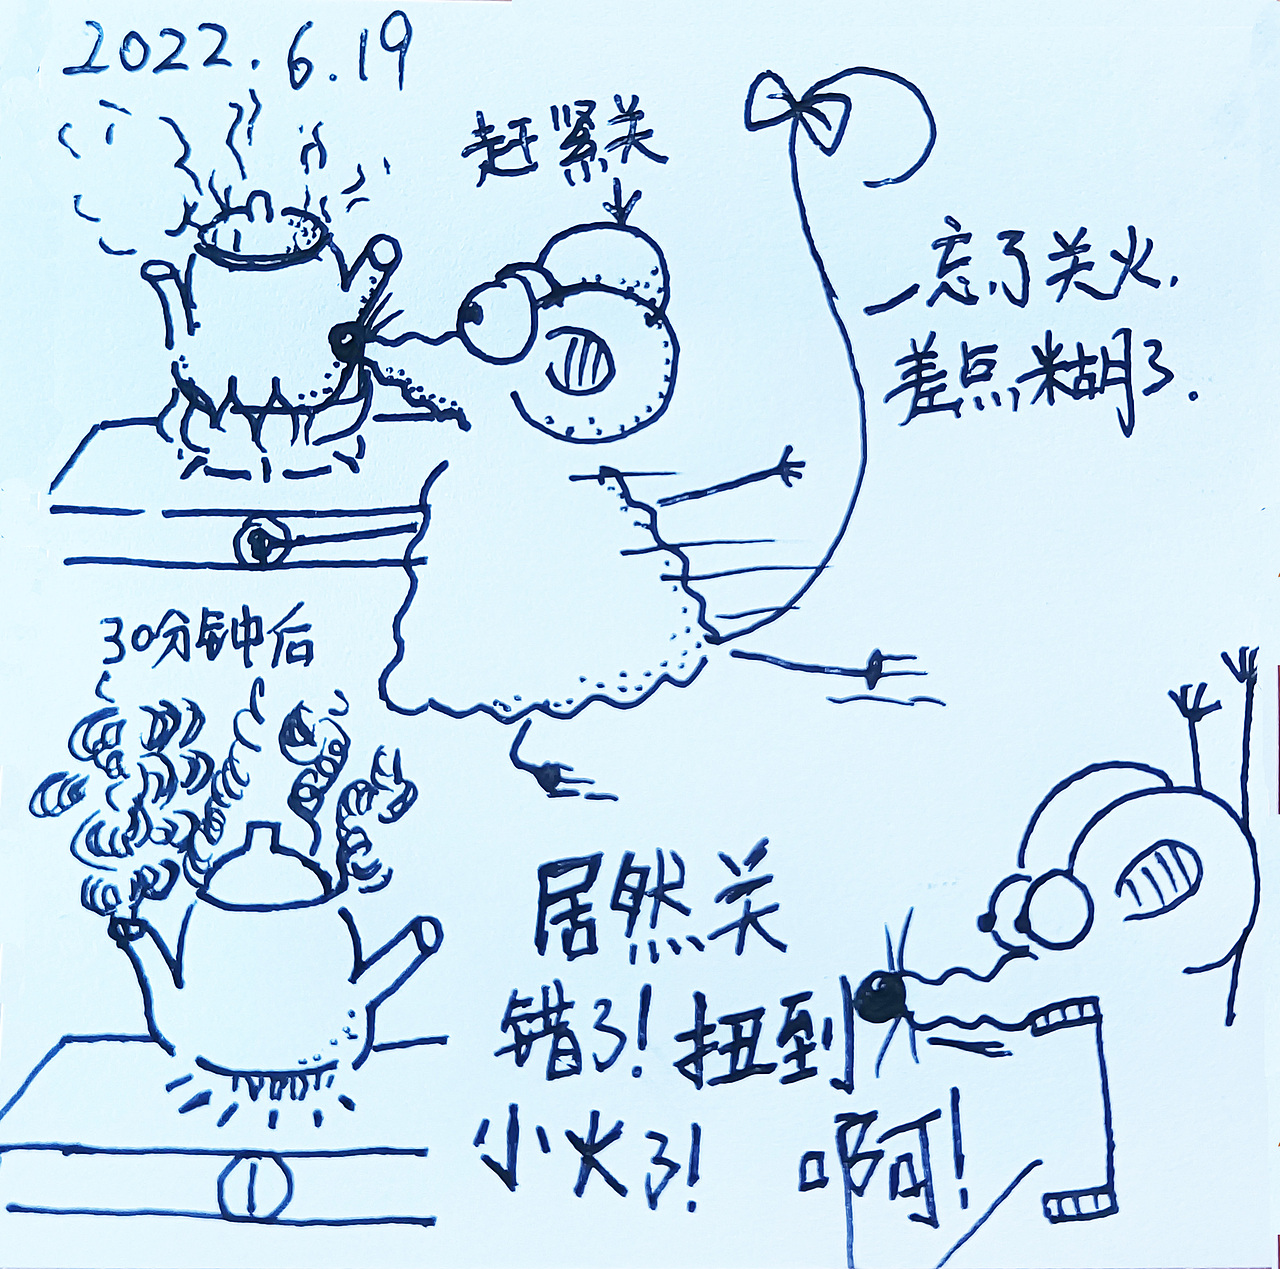 2022.6.19
赶紧关
忘了关火.
差点糊了.
30分钟后
居然关
错了!扭到
小火了!啊!